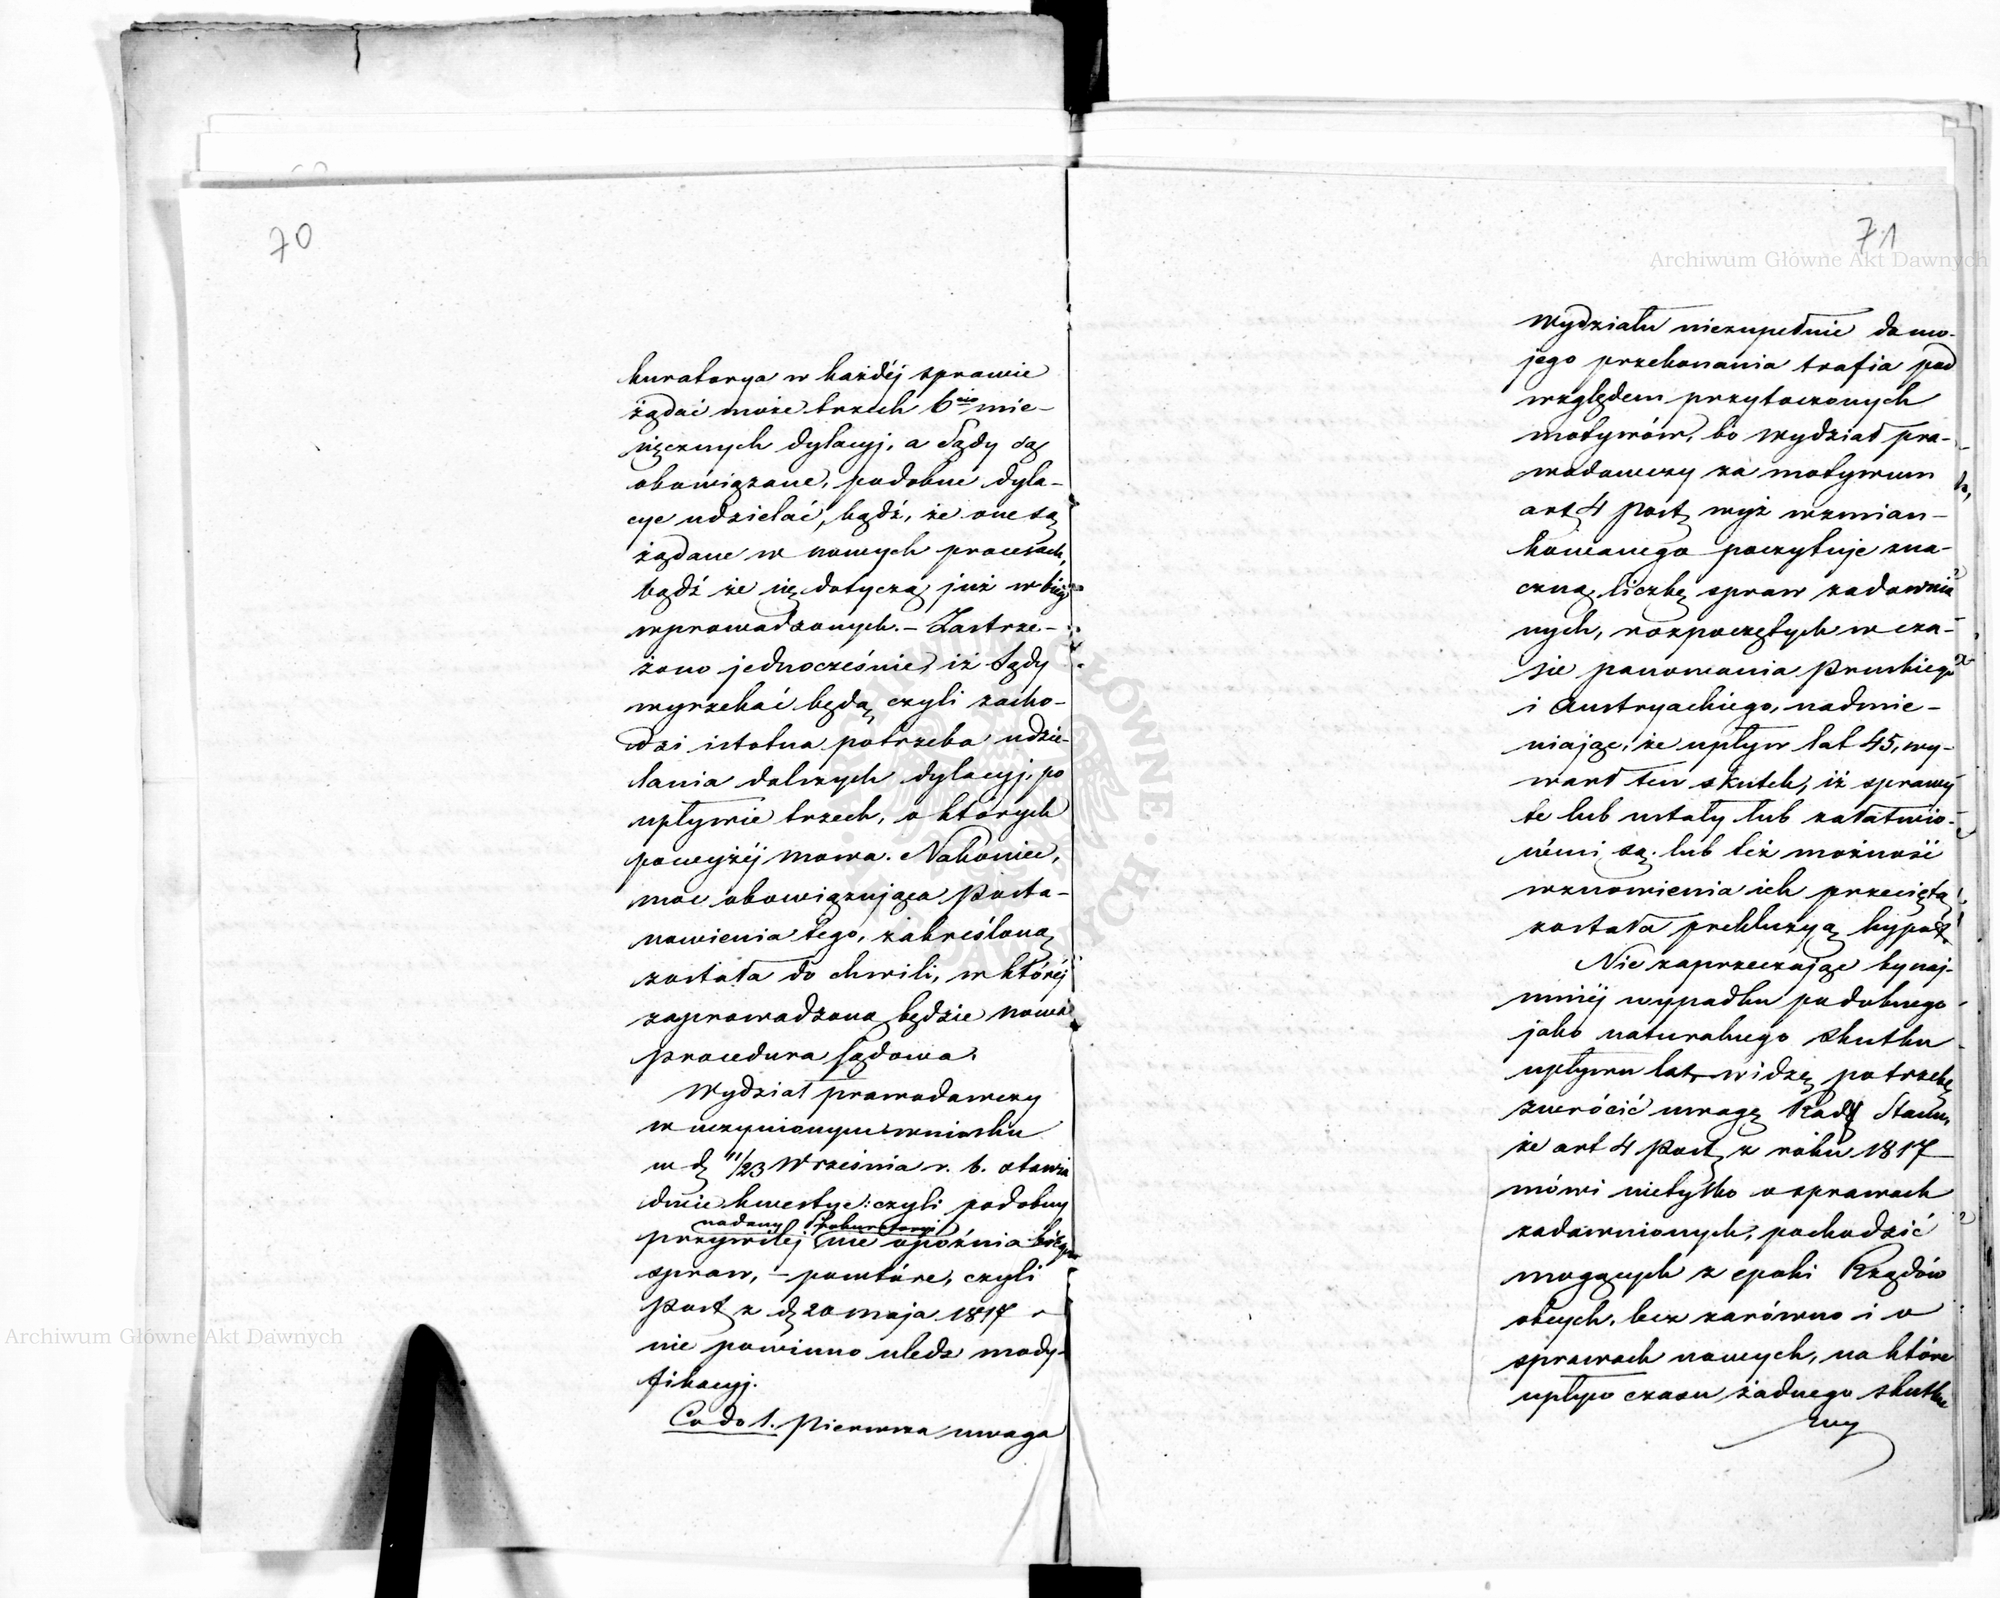 70
kuratorya w każdéj sprawie
żądać może trzech 6cio mie-
sięcznych dylacyj, a Sądy są
obowiązane, podobne dyla-
cye udzielać, bądź, że one są
żądane w nowych processach,
bądź że się dotyczą już w bieg
wprowadzonych. – Zastrze-
żono jednocześnie, iż Sądy
wyrzekać będą, czyli zacho-
dzi istotna potrzeba udzie-
lania dalszych dylacyj, po
upływie trzech, o których
powyżéj mowa. Nakoniec,
moc obowiązująca Posta-
nowienia tego, zakreśloną
została do chwili, w któréj
zaprowadzoną będzie nowa
procedura sądowa.
Wydział prawodawczy
w uczynionym wniosku
w d. 11/23 Września r. b. stawia
dwie kwestye: czyli podobny
nadany Prokuratoryi
przywiléj nie opóźnia biegu
spraw, – powtóre, czyli
Post. z d. 20 maja 1817
nie powinno uledz mody-
fikacyj.
Co do 1. Pierwsza uwaga
71
Wydziału niezupełnie do mo-
jego przekonania trafia pod
względem przytoczonych
motywów, bo wydział pra-
wodawczy za motywum
art. 4 Post. wyż wzmian-
kowanego poczytuje zna-
czną liczbę spraw zadawnio
nych, rozpoczętych w cza-
sie panowania Pruskiego
i Austryackiego, nadmie-
niając, że upływ lat 45, wy-
warł ten skutek, iż sprawy
te lub ustały lub załatwio-
némi są, lub też możność
wznowienia ich przeciętą
została prekluzyą hypot.
Nie zaprzeczając bynaj-
mniéj wypadku podobnego
jako naturalnego skutku
upływu lat, widzę potrzebę
zwrócić uwagę Rady Stanu,
że art 4 Post. z roku 1817
mówi nietylko o sprawach
zadawnionych, pochodzić
mogących z epoki Rządów
obcych, lecz zarówno i o
sprawach nowych, na które
upływ czasu żadnego skutku
wy
Archiwum Główne Akt Dawnych
Archiwum Główne Akt Dawnych